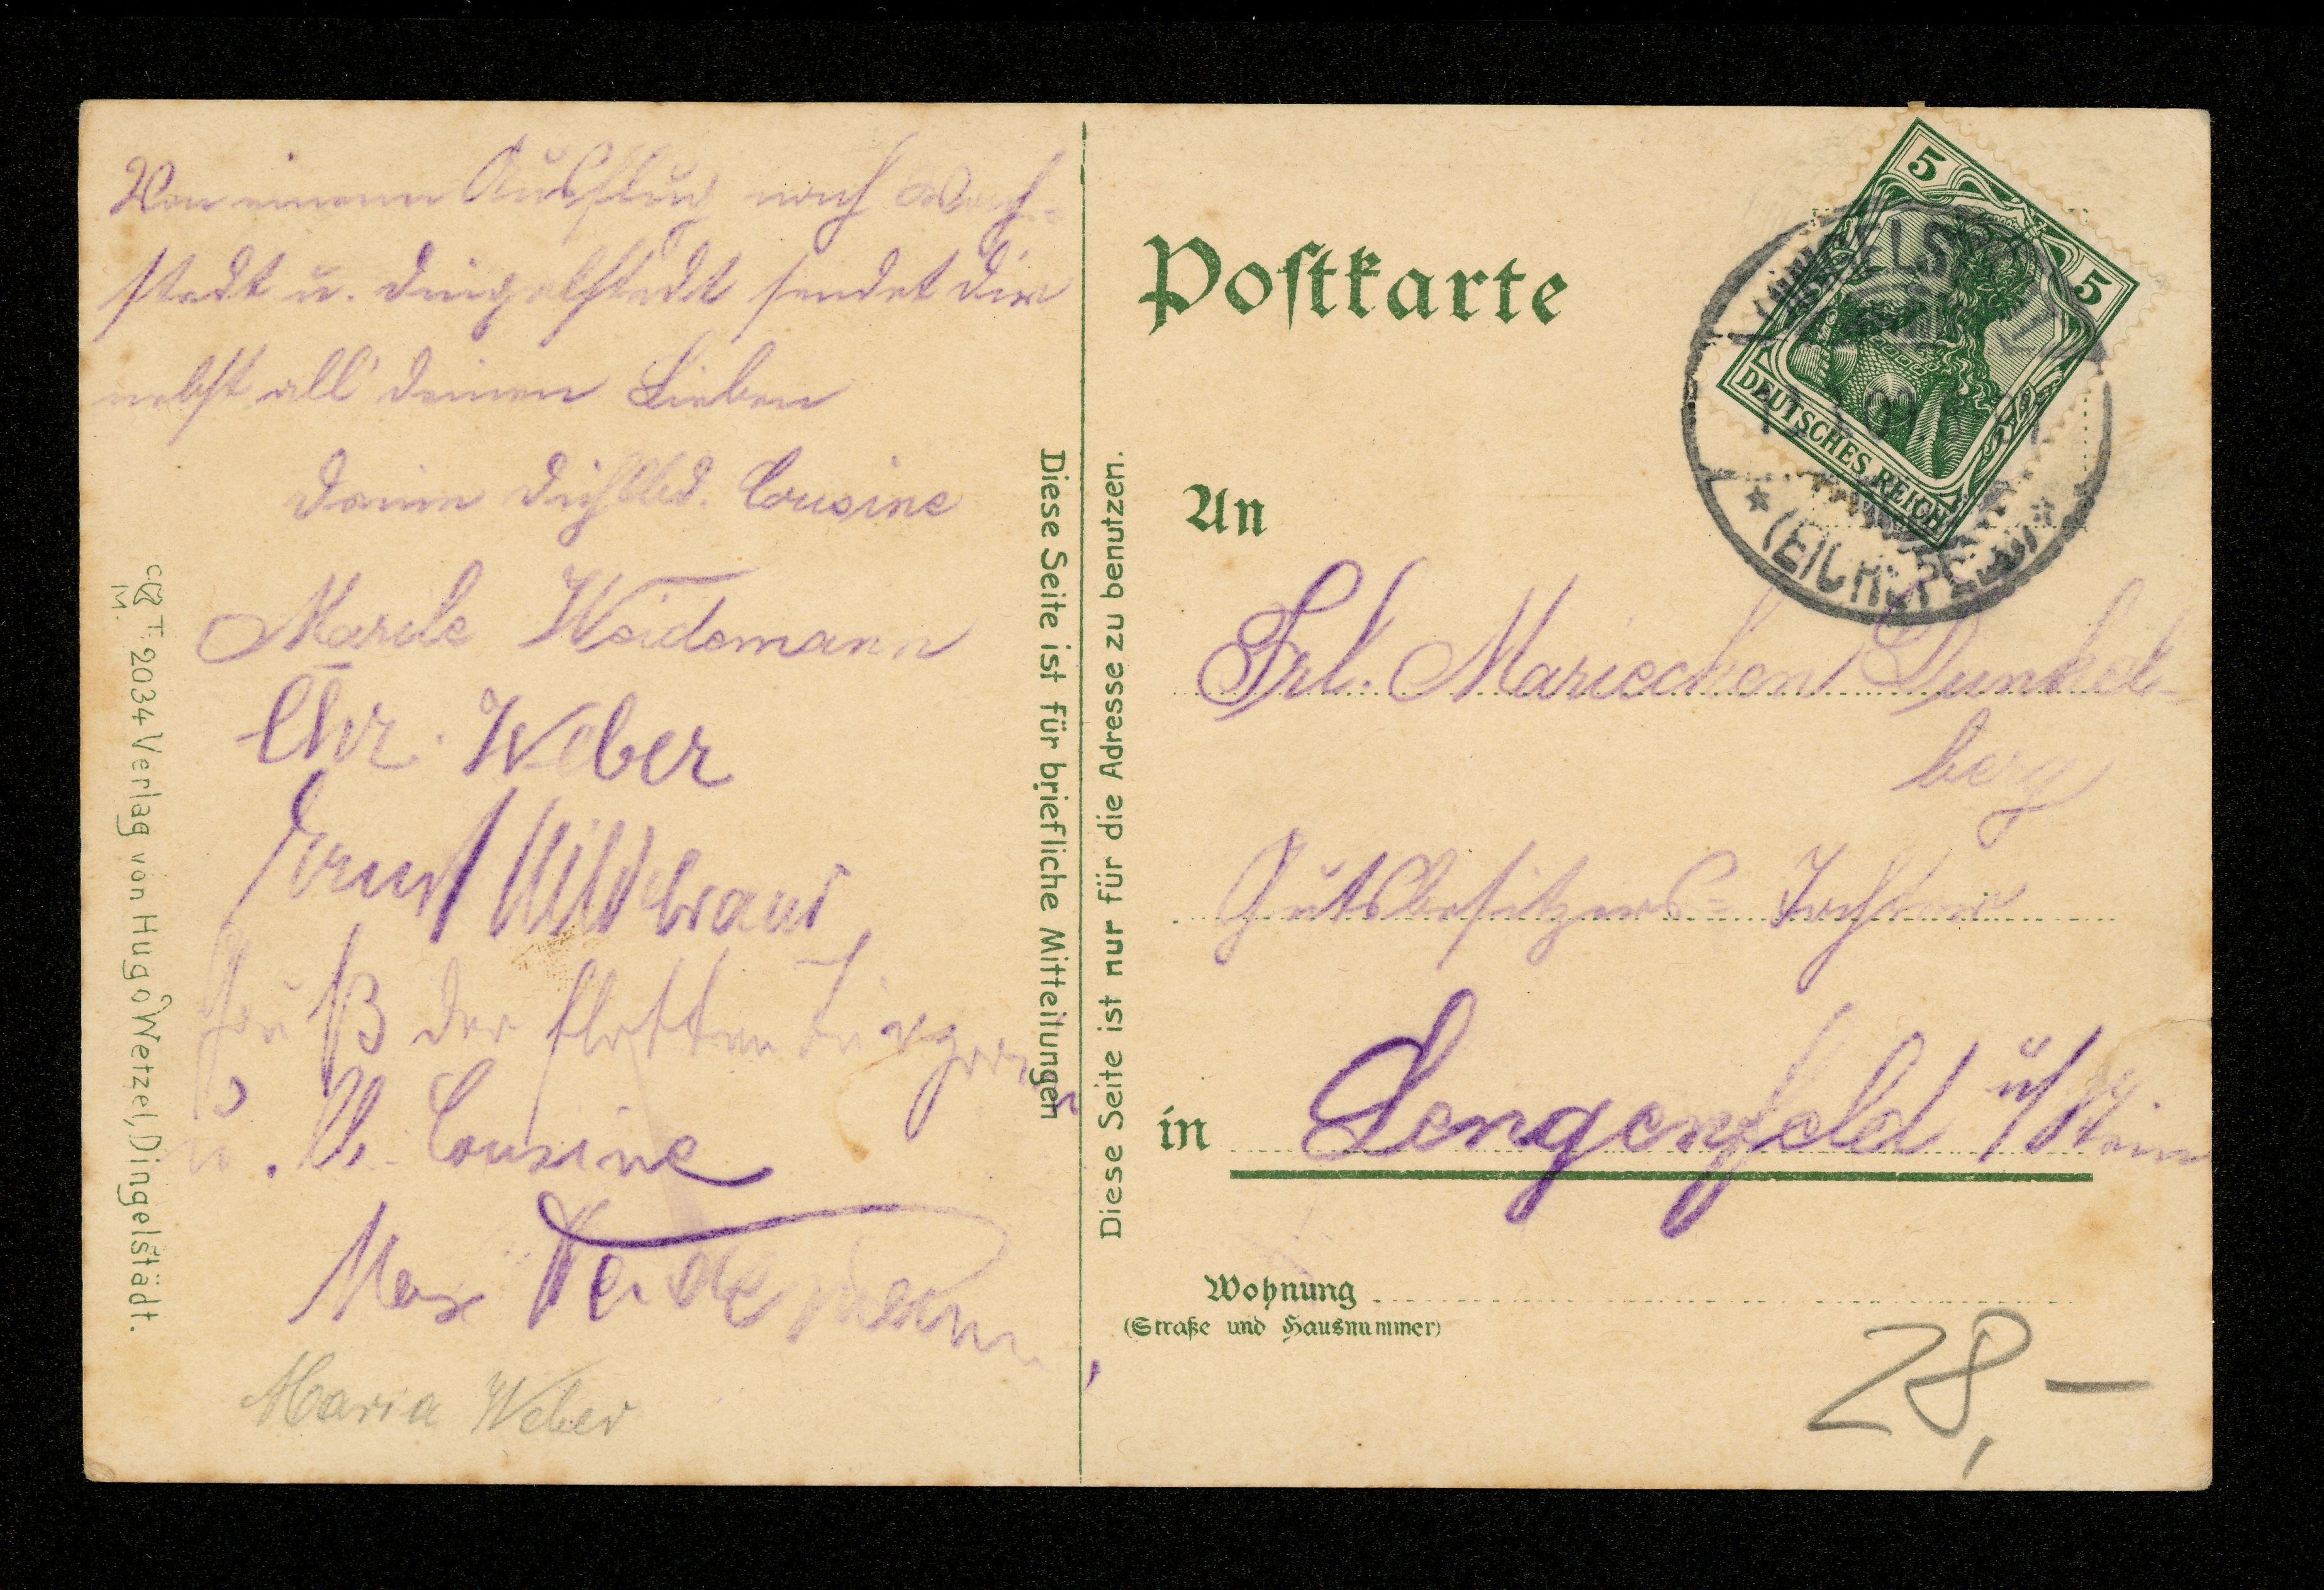 Von einem Ausflug nach Wach-
stedt u. Dingelstedt sendet Dir
nebst all' deinen Lieben
Deine Dich lbd. Cousine
Weidemann
Chr. Weber
Ernst Hildebrand
Gruß der flotten
u. Cousine
Max Weidemann
Maria Weber
C T. 2034 Verlag von Hugo Wetzel, Dingelstädt.
M.
Diese Seite ist für briefliche Mitteilungen
Diese Seite ist nur für die Adresse zu benutzen.
Postkarte
5
5
DEUTSCHES REICH
DINGELSTÄDT
(EICHSFELD)
An
Frl. Mariechen Dunkel-
berg
Gutsbesitzers-Tochter
in Lengenfeld u/Stein
Wohnung
(Straße und Hausnummer)
28,—